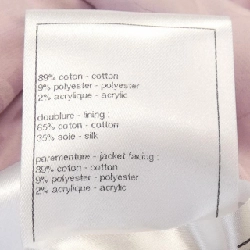 89% coton - cotton
9% polyester - polyester
2% acrylique - acrylic
doublure - lining :
65% coton - cotton
35% soie - silk
parementure - jacket facing :
89% coton - cotton
9% polyester - polyester
2% acrylique - acrylic